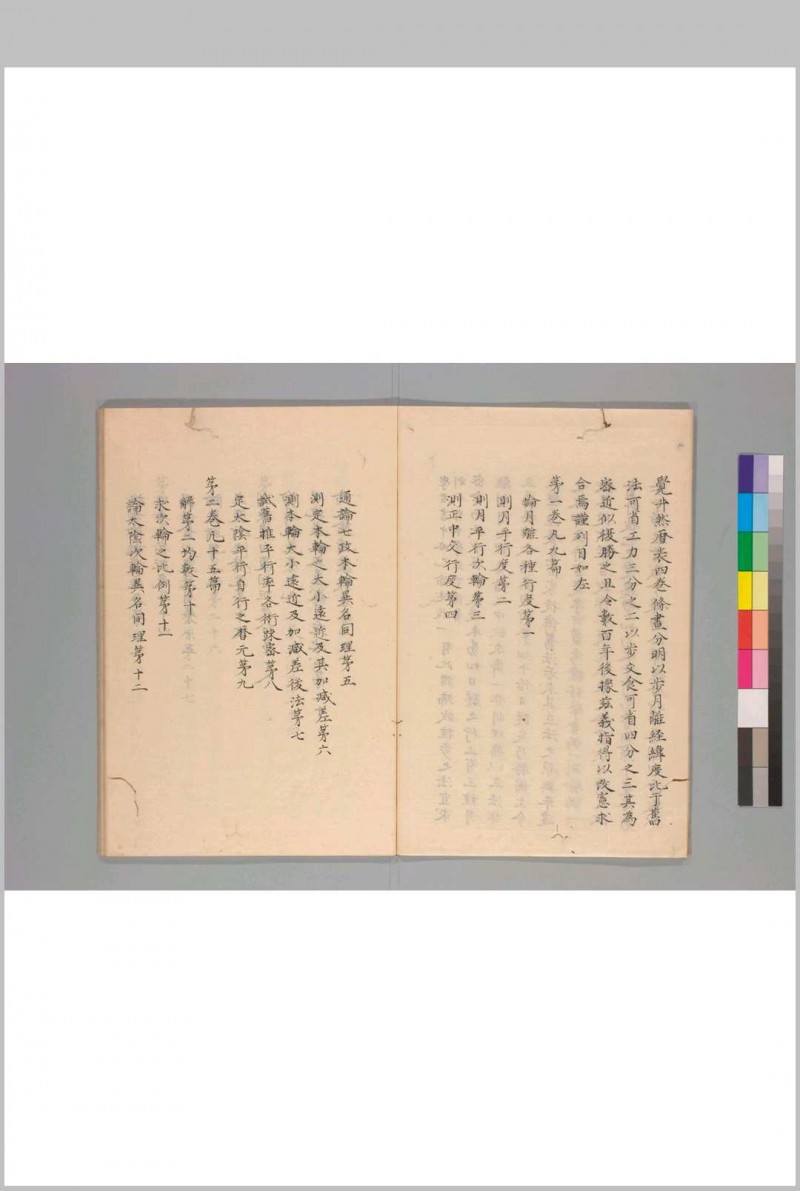 覺井然曆表四卷條畫分明以步月離經緯度比于舊
法可省工力三分之二以步交食可省四分之三其為
密近似復勝之且令數百年後據玆義指得以改憲求
合焉謹列目如左
第一卷凡九篇
論月離各種行度第一
測月平行度第二
測月平行次輪第三
測正中交行度第四
通論七政本輪異名同理第五
測定本輪之大小遠近及其加减差第六
測本輪大小遠近及加减差後法第七
試舊推平行率各術踈密第八
定太陰平行自行之曆元第九
第二卷凡十五篇
解第二均數第十
求次輪之比例第十一
論太陰次輪異名同理第十二